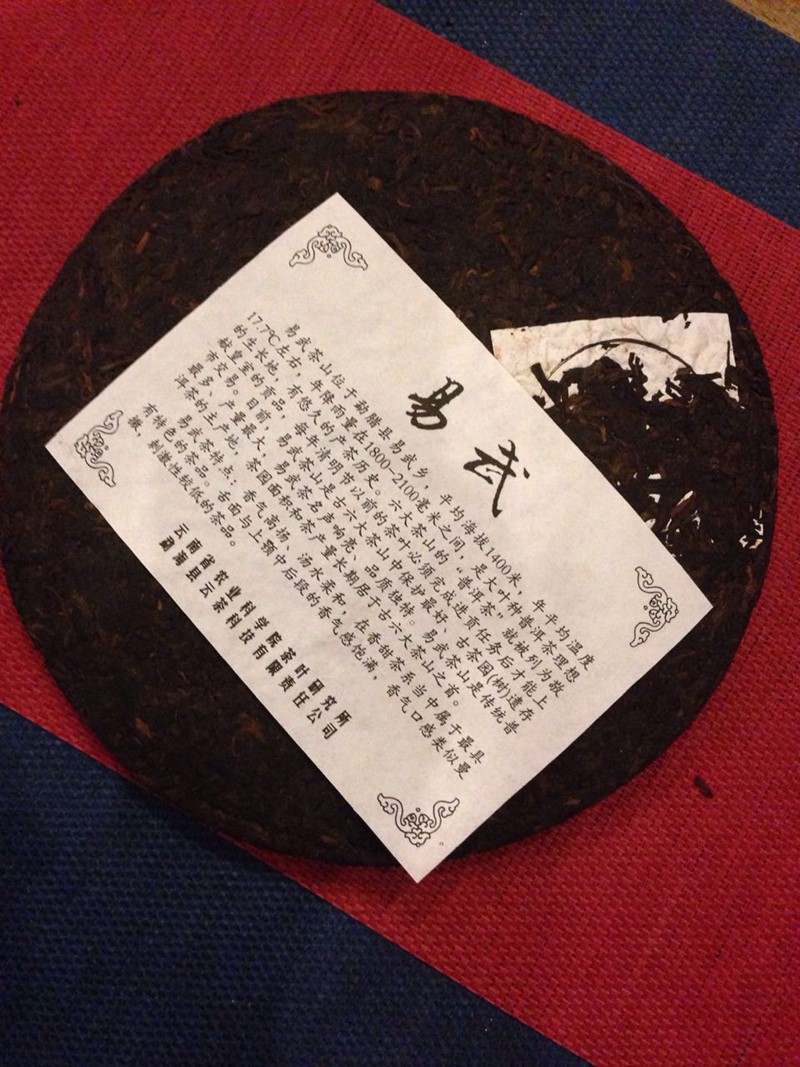 易武
易武茶山位于勐腊县易武乡，平均海拔1400米，年平均温度
17.7℃左右，年降雨量在1800-2100毫米之间，是大叶种普洱茶理想
的生长地，有悠久的产茶历史。六大茶山的“普洱茶”就被列为敬
献皇室的贡品，每年清明节以前的茶叶必须完成进贡任务后才能上
市交易。目前，易武茶山是古六大茶山中保护最好、古茶园(树)遗存
最多、产量最大，易武茶名声响亮、品质独特。易武茶山是传统普
洱茶的主产地，茶园面积和茶产量长期居于古六大茶山之首。
易武茶特点：香气高扬、汤水柔和，在香甜茶系当中属于最具
有特色的茶品。舌面与上颚中后段的香气感饱满，香气口感类似曼
撒，刺激性较低的茶品。
云南省农业科学院茶叶研究所
勐海县云茶科技有限责任公司